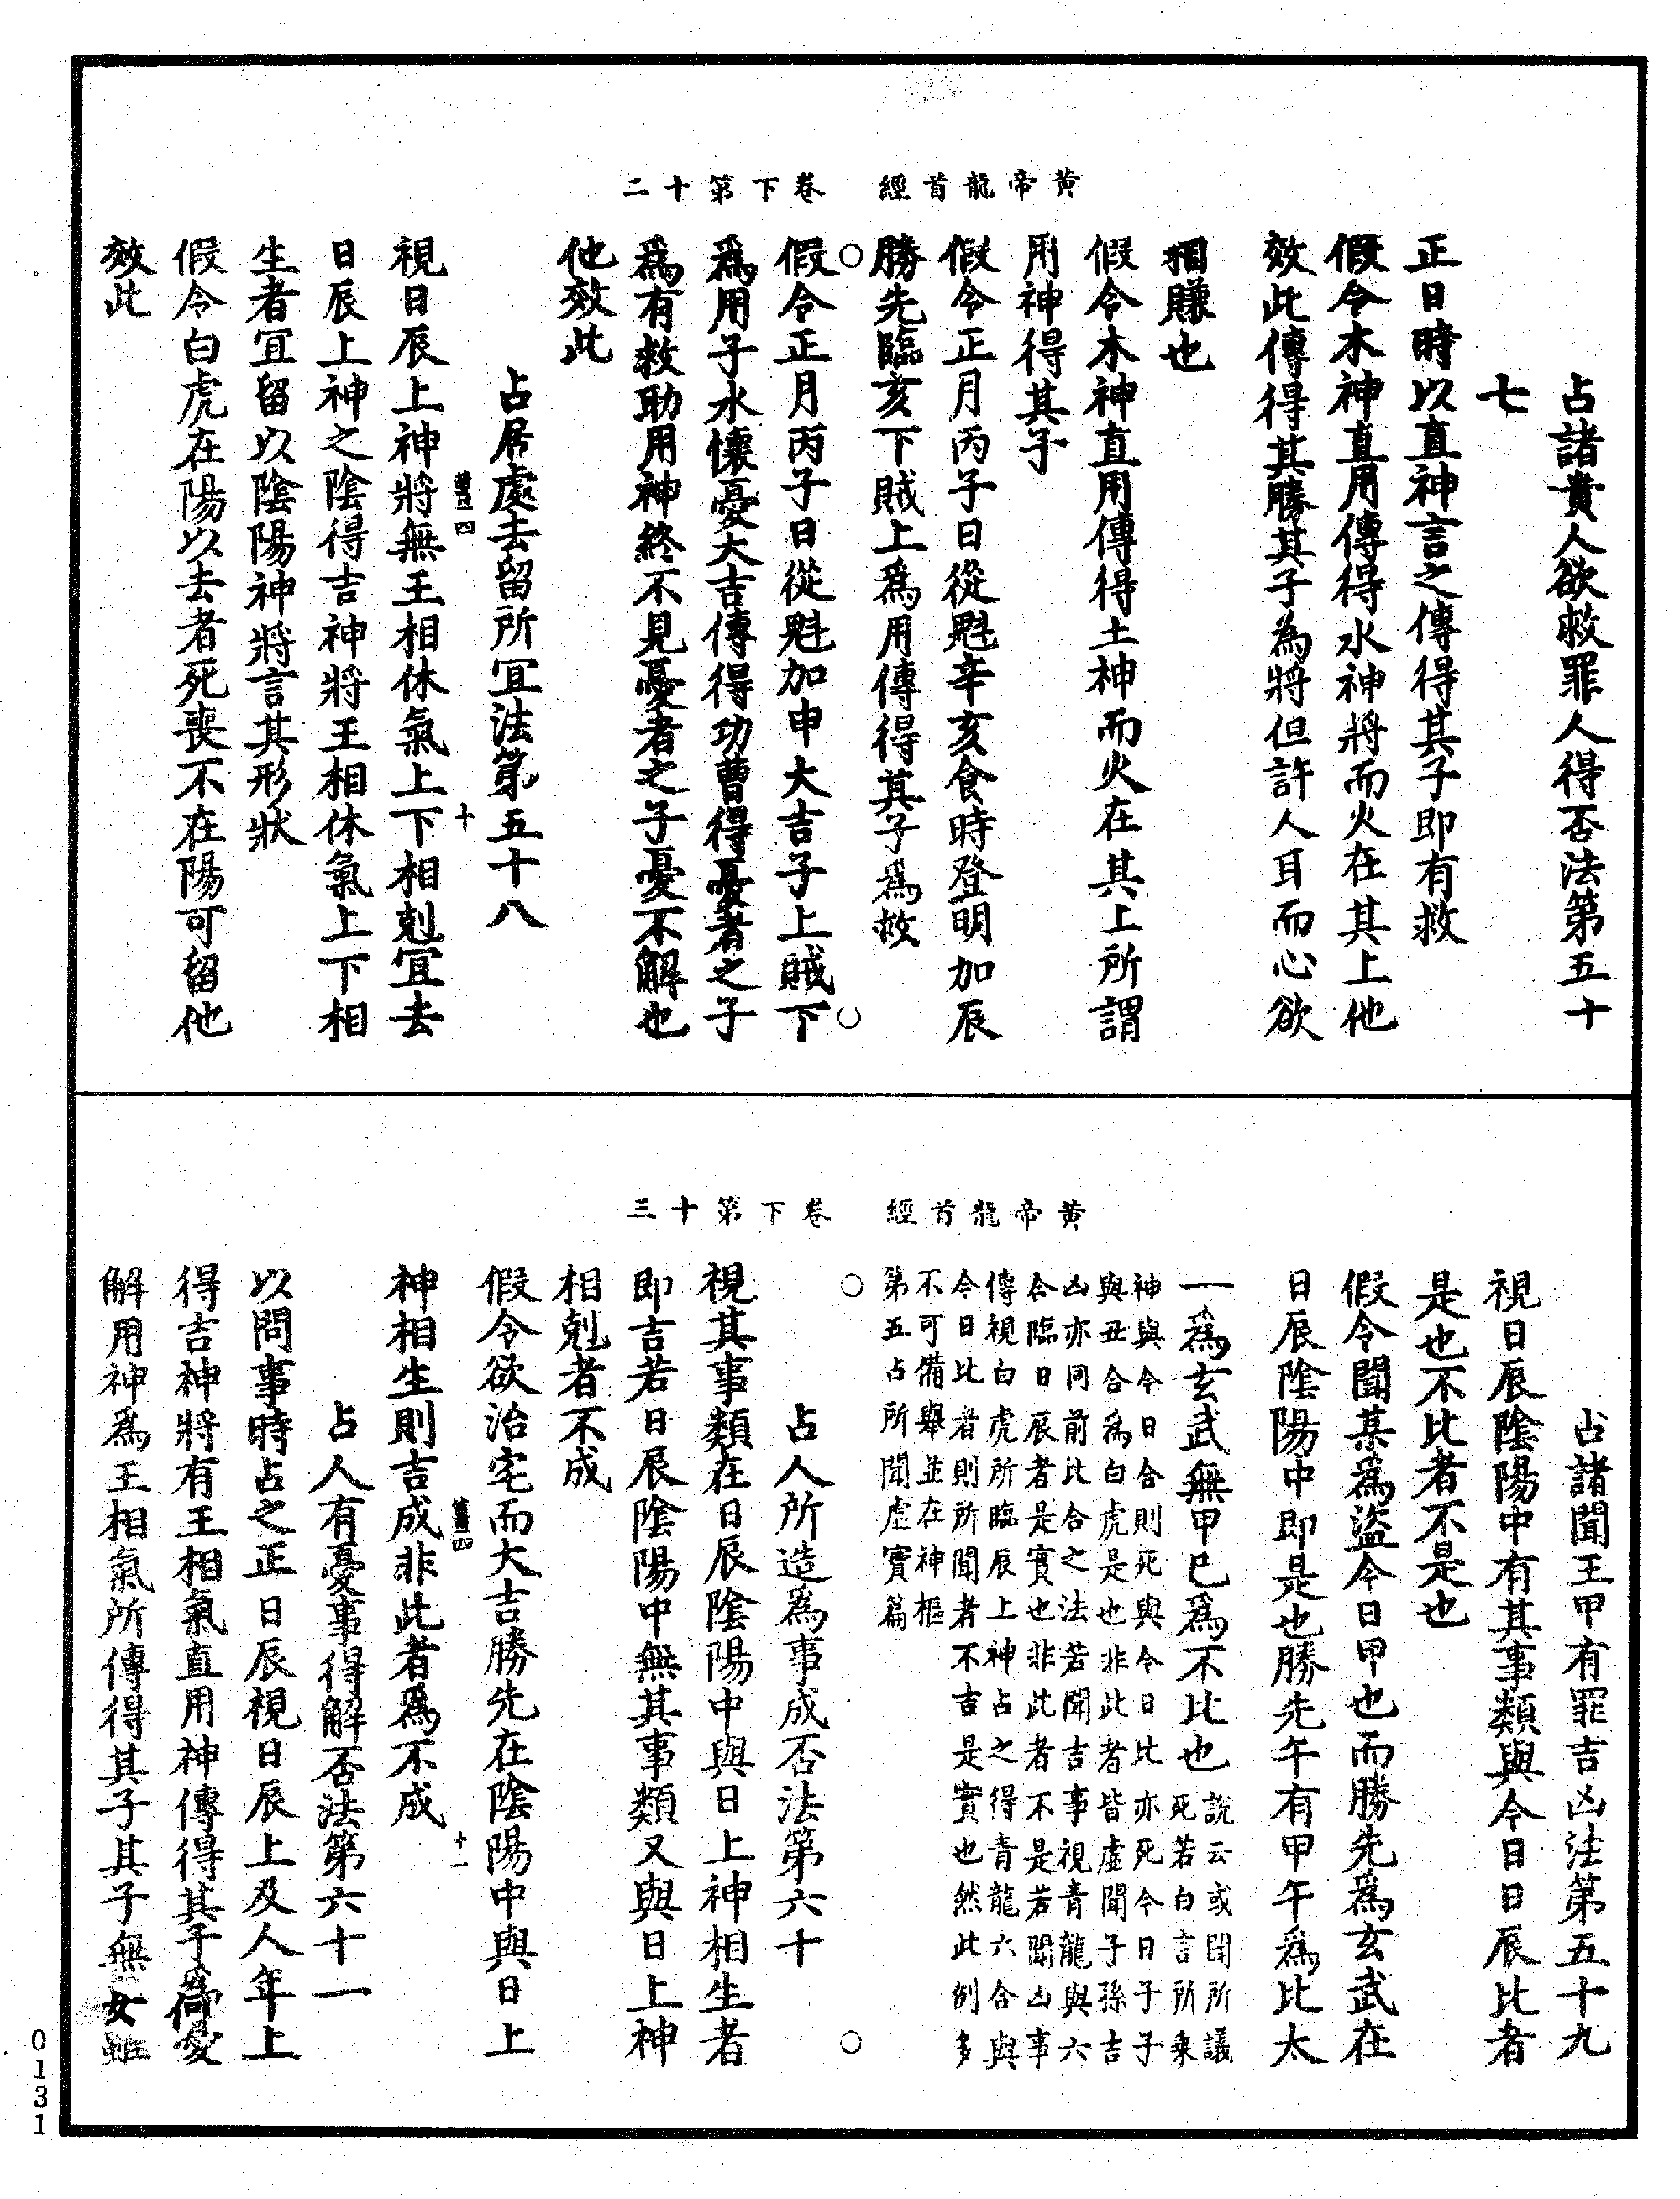 黃帝龍首經　卷下第十二
占諸貴人欲救罪人得否法第五十
七
正日時以直神言之傳得其子即有救
假令木神直用傳得水神將而火在其上他
效此傳得其勝其子為將但許人耳而心欲
相賺也
假令木神直用傳得土神而火在其上所謂
用神得其子
假令正月丙子日從魁辛亥食時登明加辰
勝先臨亥下賊上爲用傳得其子爲救
假令正月丙子日從魁加申大吉子上賊下
爲用子水懷憂大吉傳得功曹得憂者之子
爲有救助用神終不見憂者之子憂不解也
他效此
占居處去留所宜法第五十八
視日辰上神將無王相休氣上下相剋宜去
十
日辰上神之陰得吉神將王相休氣上下相
生者宜留以陰陽神將言其形狀
假令白虎在陽以去者死喪不在陽可留他
效此
黃帝龍首經　卷下第十三
占諸聞王甲有罪吉凶法第五十九
視日辰陰陽中有其事類與今日日辰比者
是也不比者不是也
假令聞某爲盜今日甲也而勝先爲玄武在
日辰陰陽中即是也勝先午有甲午爲比太
一爲玄武無甲巳爲不比也
說云或聞所議
死若白言所乘
神與今日合則死與今日比亦死今日子子
與丑合爲白虎是也非此者皆虛聞子孫吉
凶亦同前比合之法若聞吉事視青龍與六
合臨日辰者是實也非此者不是若聞凶事
傳視白虎所臨辰上神占之得青龍六合與
今日比者則所聞者不吉是實也然此例多
不可備舉並在神樞
第五占所聞虛實篇
占人所造爲事成否法第六十
視其事類在日辰陰陽中與日上神相生者
即吉若日辰陰陽中無其事類又與日上神
相剋者不成
假令欲治宅而大吉勝先在陰陽中與日上
十一
神相生則吉成非此者爲不成
占人有憂事得解否法第六十一
以問事時占之正日辰視日辰上及人年上
得吉神將有王相氣直用神傳得其子爲憂
解用神爲王相氣所傳得其子其子無女雖
0131